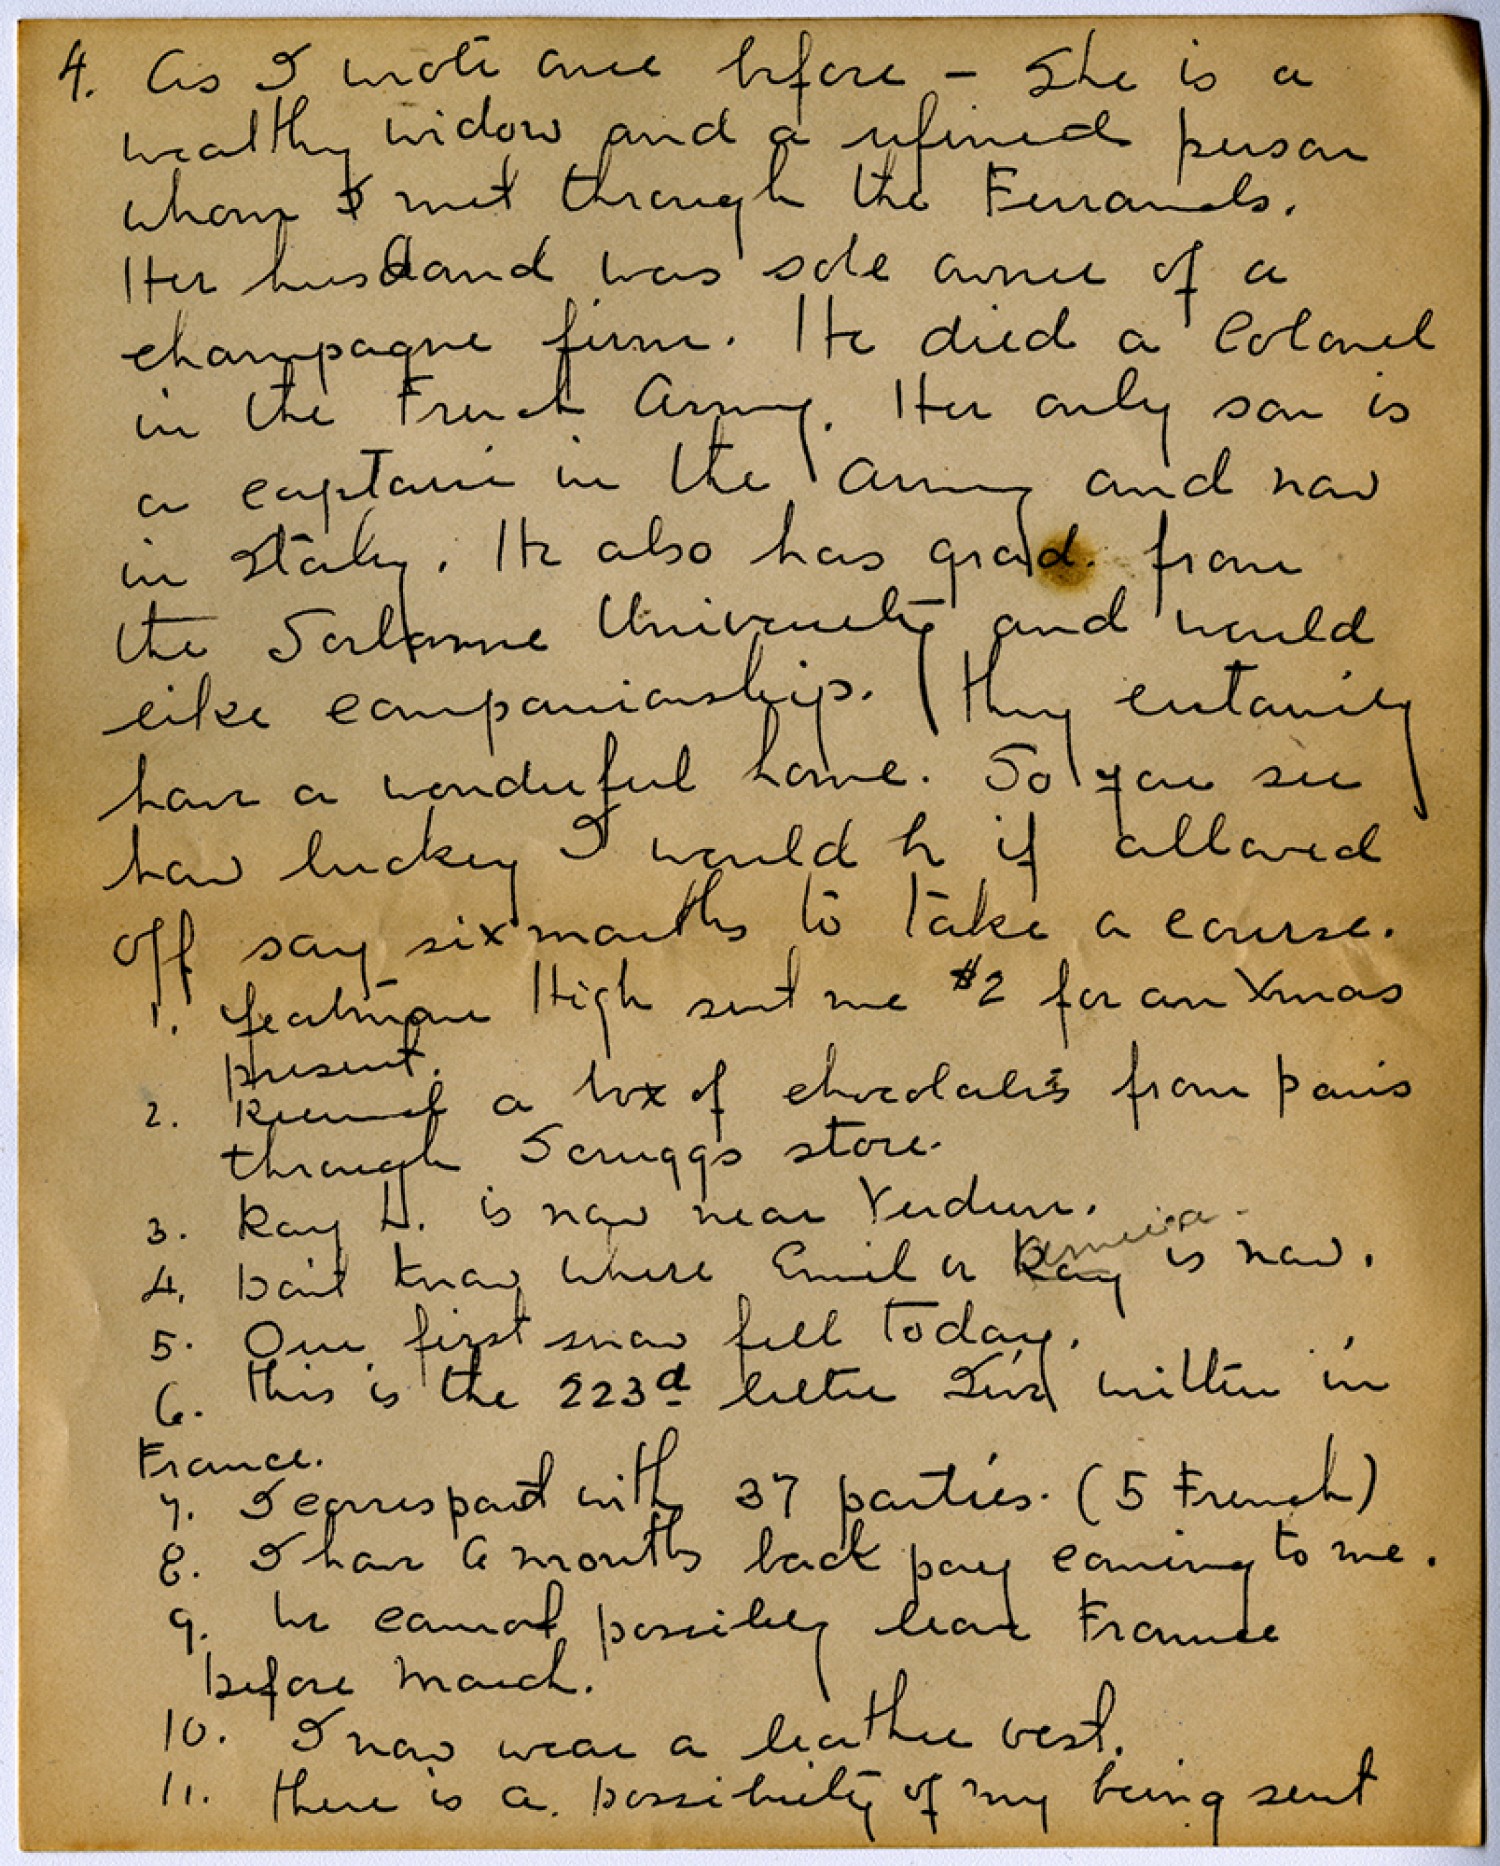 4. As I wrote once before – She is a
wealthy widow and a refined person
whom I met through the Ferrands.
Her husband was sole owner of a
champagne firm. He died a Colonel
in the French Army. Her only son is
a captain in the Army and now
in Italy. He also has grad. from
the Sorbonne University and would
like companionship. They certainly
have a wonderful home. So you see
how luckey I would be if allowed
off say six months to take a course.
1. Yeatman High sent me $2 for an Xmas
present.
2. Received a box of chocolates from Paris
through Scruggs store.
3. Ray H. is now near Verdun.
America.
4. Don't know where Emil or Ray is now.
5. Our first snow fell today.
6. This is the 223d letter I've written in
France.
7. I correspond with 37 parties. (5 French)
8. I have 6 months back pay coming to me.
9. We cannot possibley leave France
before March.
10. I now wear a leather vest.
11. There is a possibility of my being sent